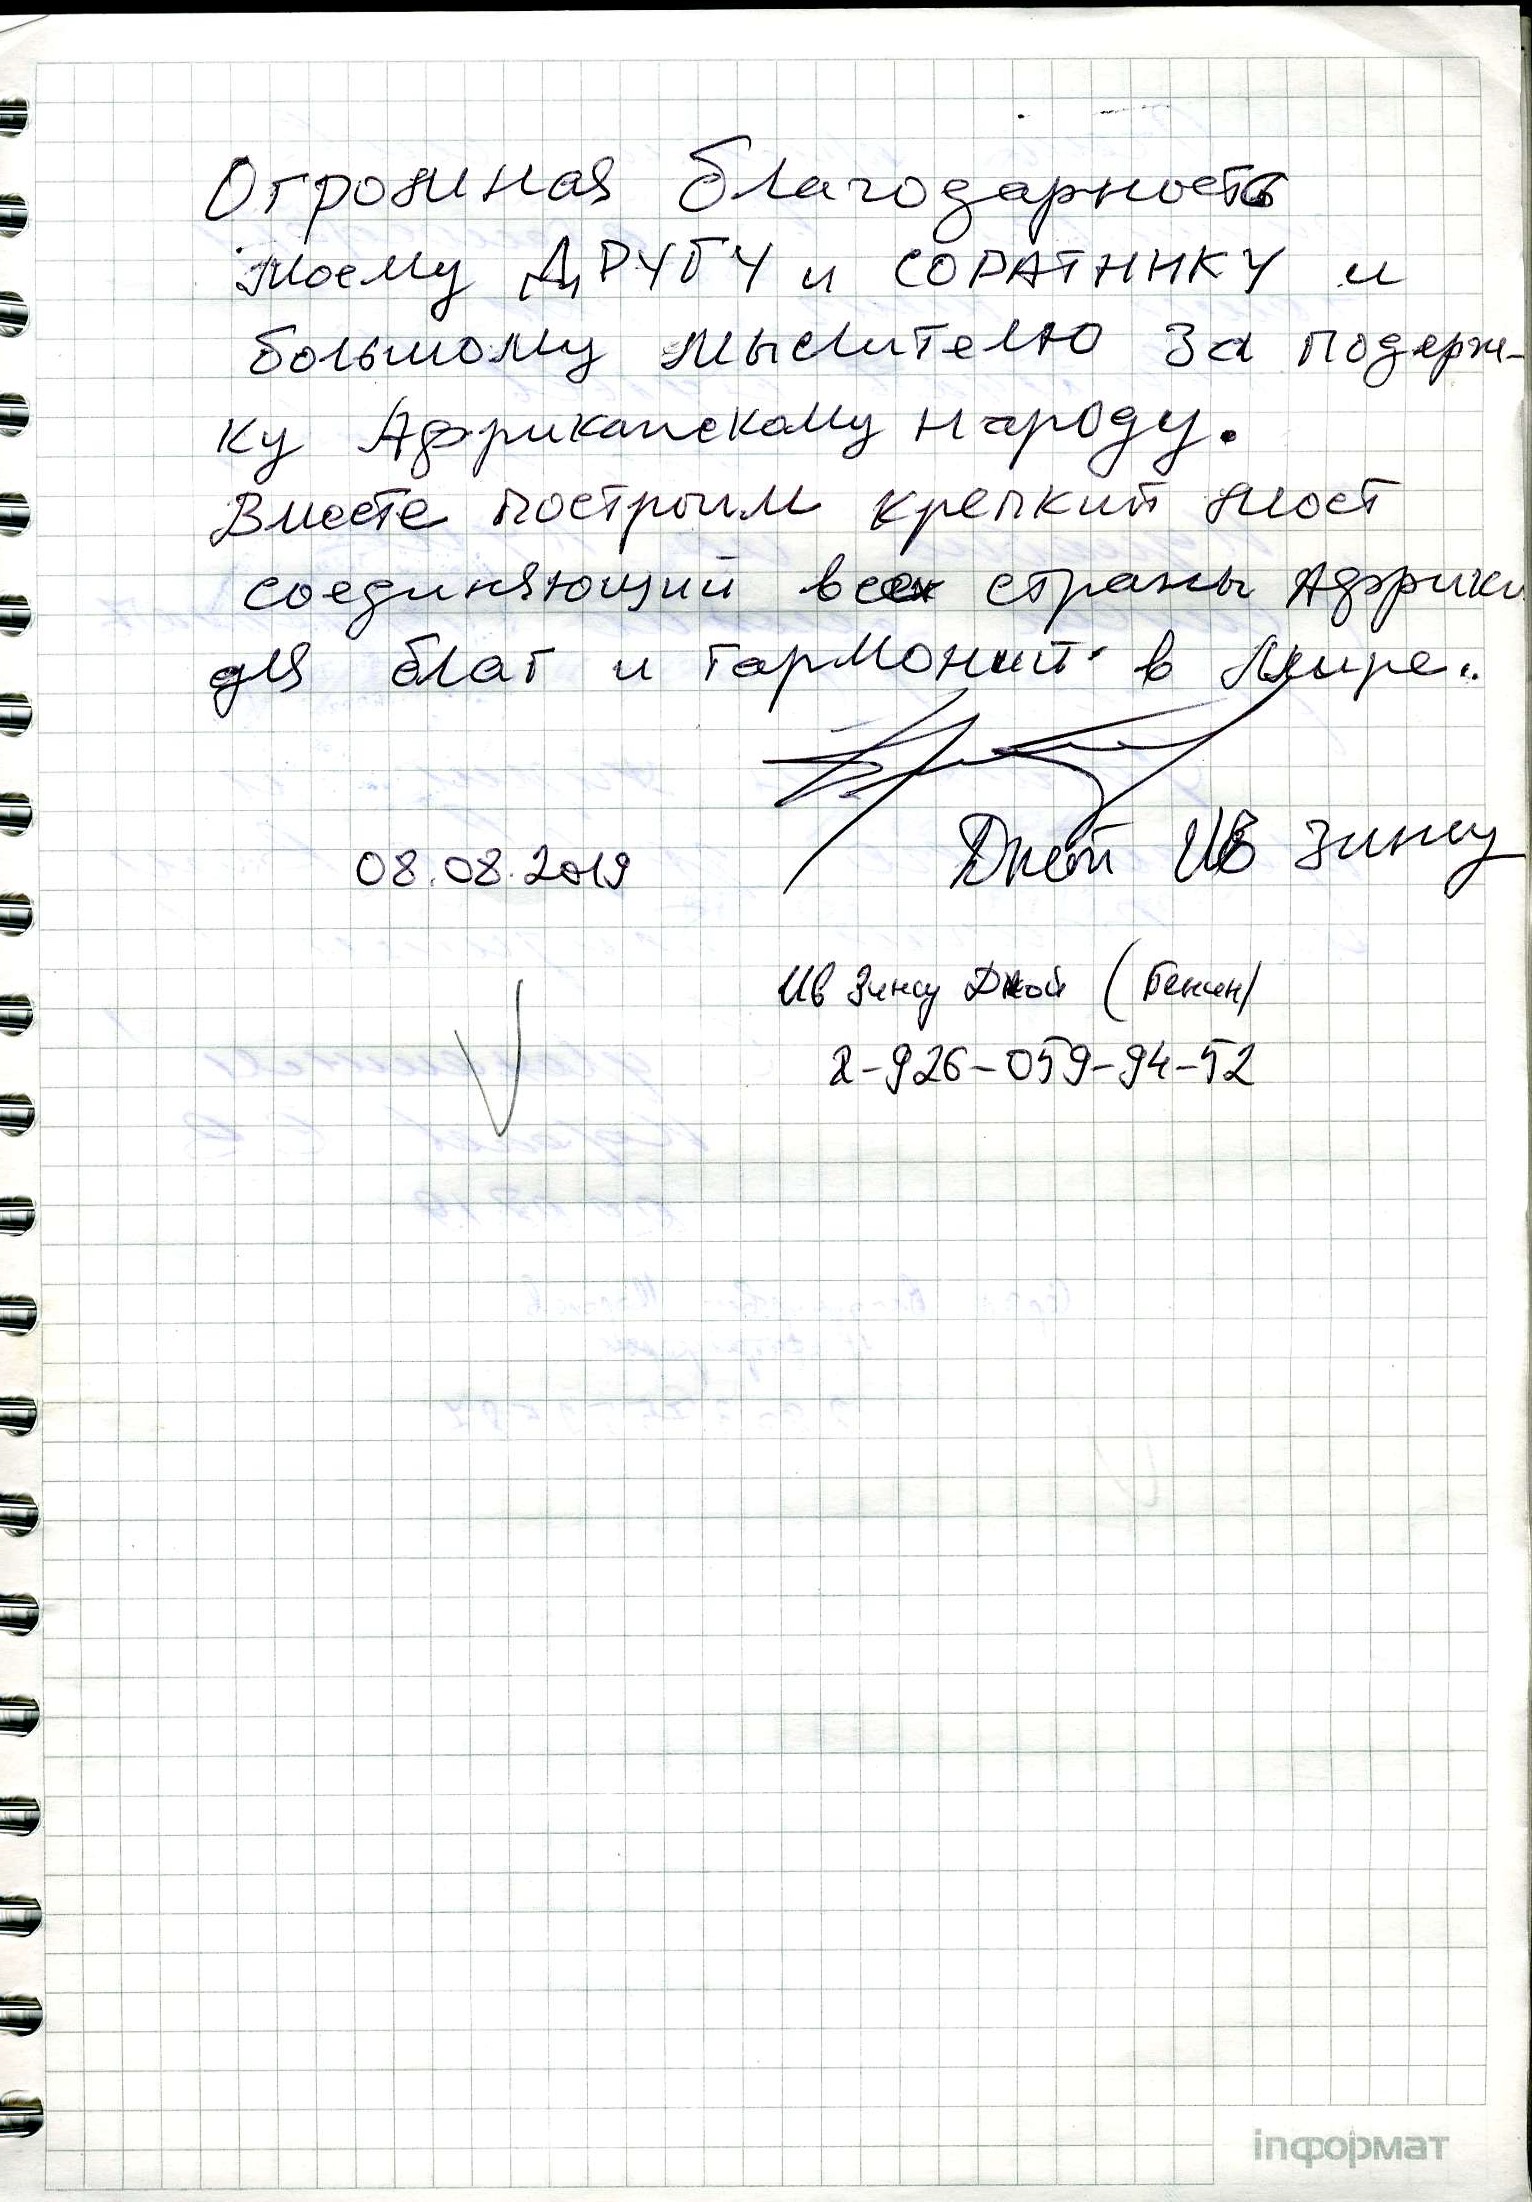 Огромная благодарность
моему ДРУГУ и СОРАТНИКУ и
большому мыслителю за подерж-
ку Африканскому народу.
Вместе построим крепкий мост
соединяющий всех страны Африки
для благ и гармоний в Мире..
08.08.2019
Джой Ив Зинсу
Ив Зинсу Джой (Бенин)
8-926-059-94-52
inформат